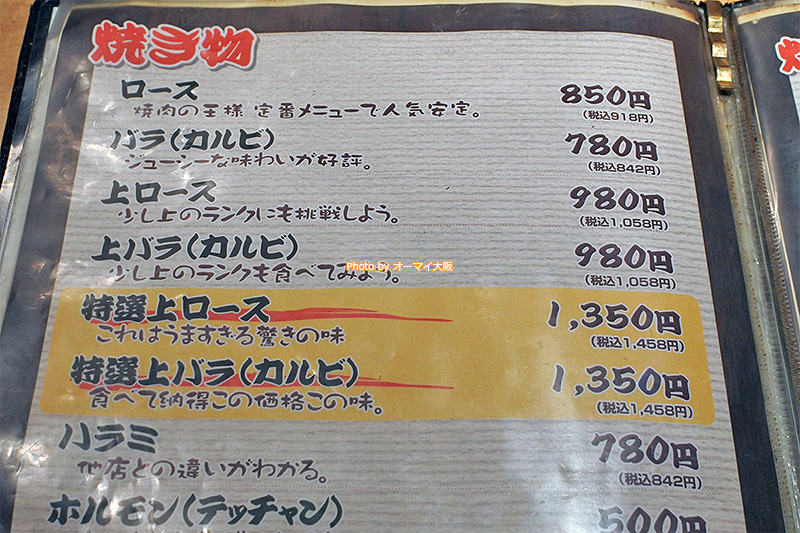 焼き物
ロース 850円
焼肉の王様 定番メニューで人気安定。 (税込918円)
バラ(カルビ) 780円
ジューシーな味わいが好評。 (税込842円)
上ロース 980円
少し上のランクにも挑戦しよう。 (税込1,058円)
上バラ(カルビ) 980円
少し上のランクも食べてみよう。 (税込1,058円)
Photo by オーマイ大阪
特選上ロース 1,350円
これはうますぎる驚きの味 (税込1,458円)
特選上バラ(カルビ) 1,350円
食べて納得この価格この味。 (税込1,458円)
ハラミ 780円
他店との違いがわかる。 (税込842円)
ホルモン(テッチャン) 500円